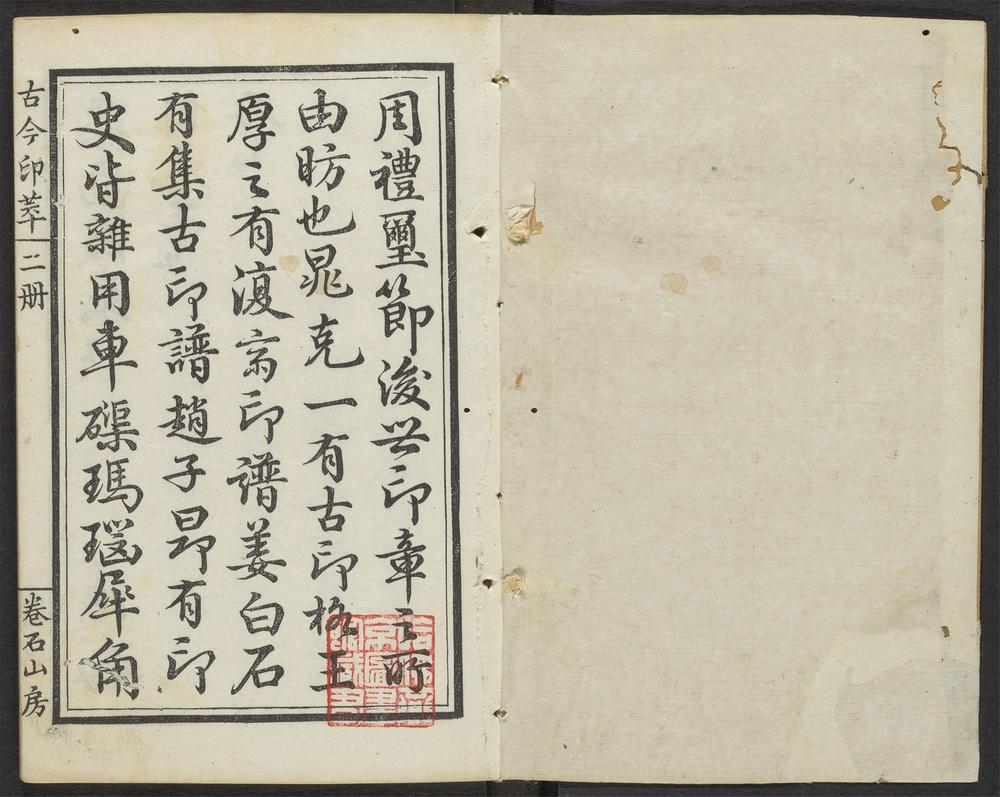 周禮璽節後世印章之所
由昉也晁克一有古印格王
厚之有復齋印譜姜白石
有集古印譜趙子昂有印
史皆雜用車磲瑪瑙犀角
古今印萃 二册
卷石山房